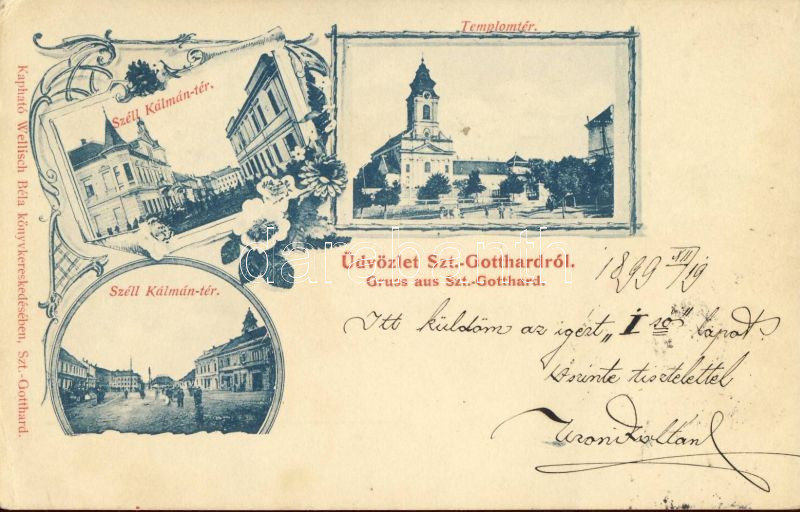 Templomtér.
Széll Kálmán-tér.
Széll Kálmán-tér.
Kapható Wellisch Béla könyvkereskedésében, Szt.-Gotthard.
Üdvözlet Szt.-Gotthardról.
Gruss aus Szt.-Gotthard.
1899 XII/19
Itt küldöm az igért „I ső" lapot.
Őszinte tisztelettel
darabanth